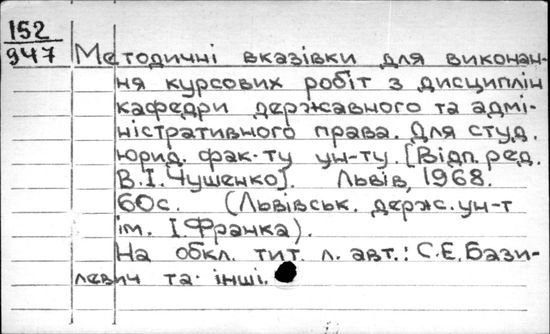 152
947
Методичні вказівки для виконан-
ня курсових робіт з дисциплін
кафедри державного та адмі-
ністративного права. Для студ.
юрид. фак-ту ун-ту. [Відп. ред.
В.І. Чушенко]. Львів, 1968.
60с. (Львівськ. держ. ун-т
ім. І. Франка).
На обкл. тит. л. авт.: С.Е. Бази-
левич та інші.